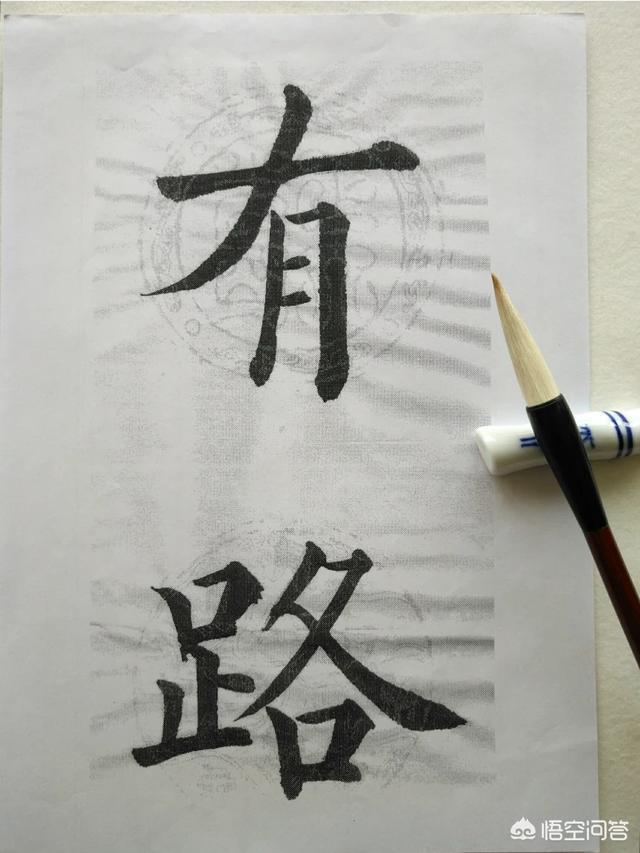 有
路
悟空问答